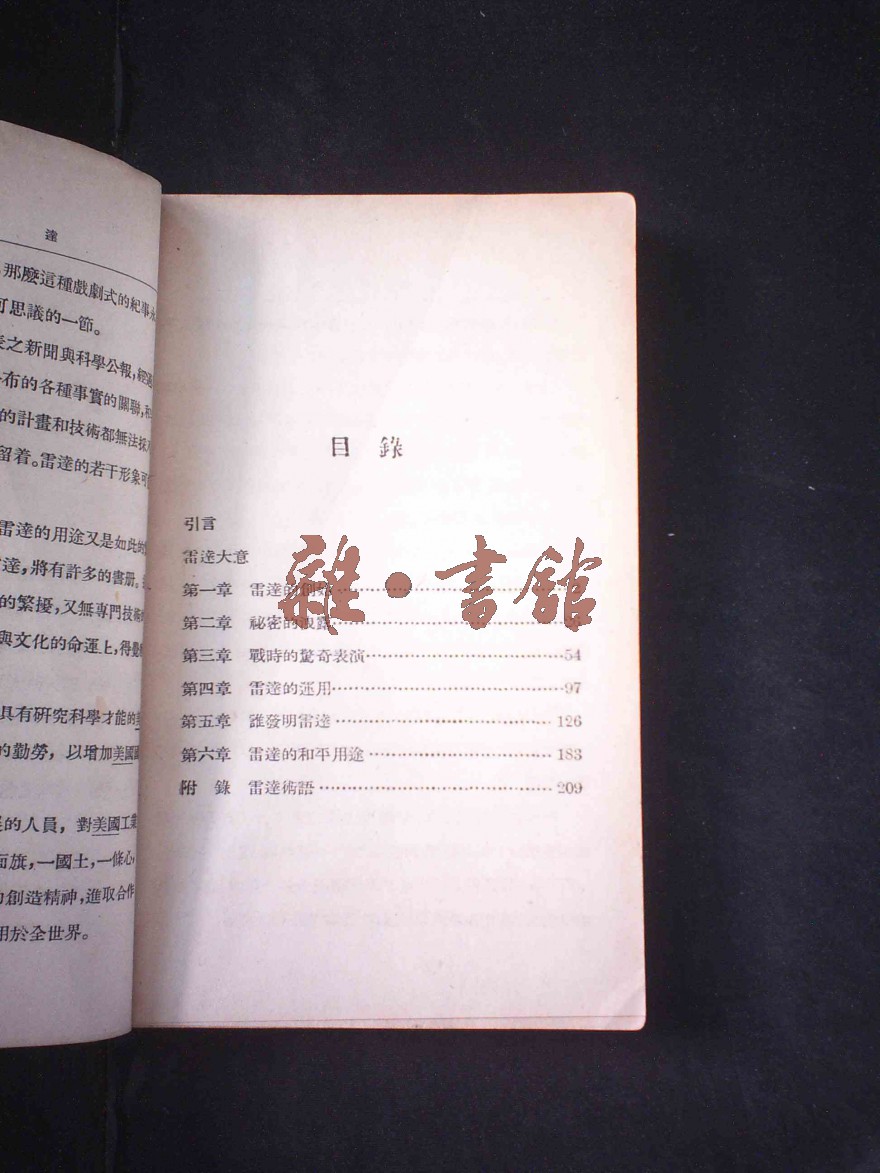 達
那麽這種戲劇式的紀事
可思議的一節。
之新聞與科學公報,經過
布的各種事實的關聯,
的計畫和技術都無法採
留着。雷達的若干形象可
雷達的用途又是如此的
達,將有許多的書册。
的繁擾,又無專門技術
與文化的命運上,得
具有研究科學才能的
的勤勞,以增加美國
的人員,對美國工業
面旗,一國土,一條心,
創造精神,進取合作
用於全世界。
目錄
引言
雷達大意
第一章 雷達的創始
第二章 秘密的洩露
第三章 戰時的驚奇表演 54
第四章 雷達的運用 97
第五章 誰發明雷達 126
第六章 雷達的和平用途 183
附錄 雷達術語 209
雜·書館